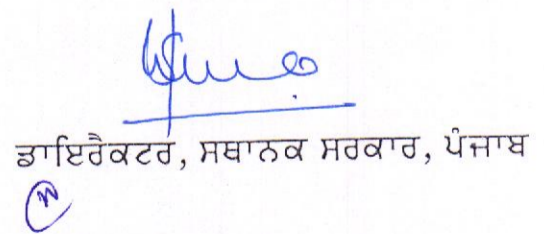 ਡਾਇਰੈਕਟਰ, ਸਥਾਨਕ ਸਰਕਾਰ, ਪੰਜਾਬ